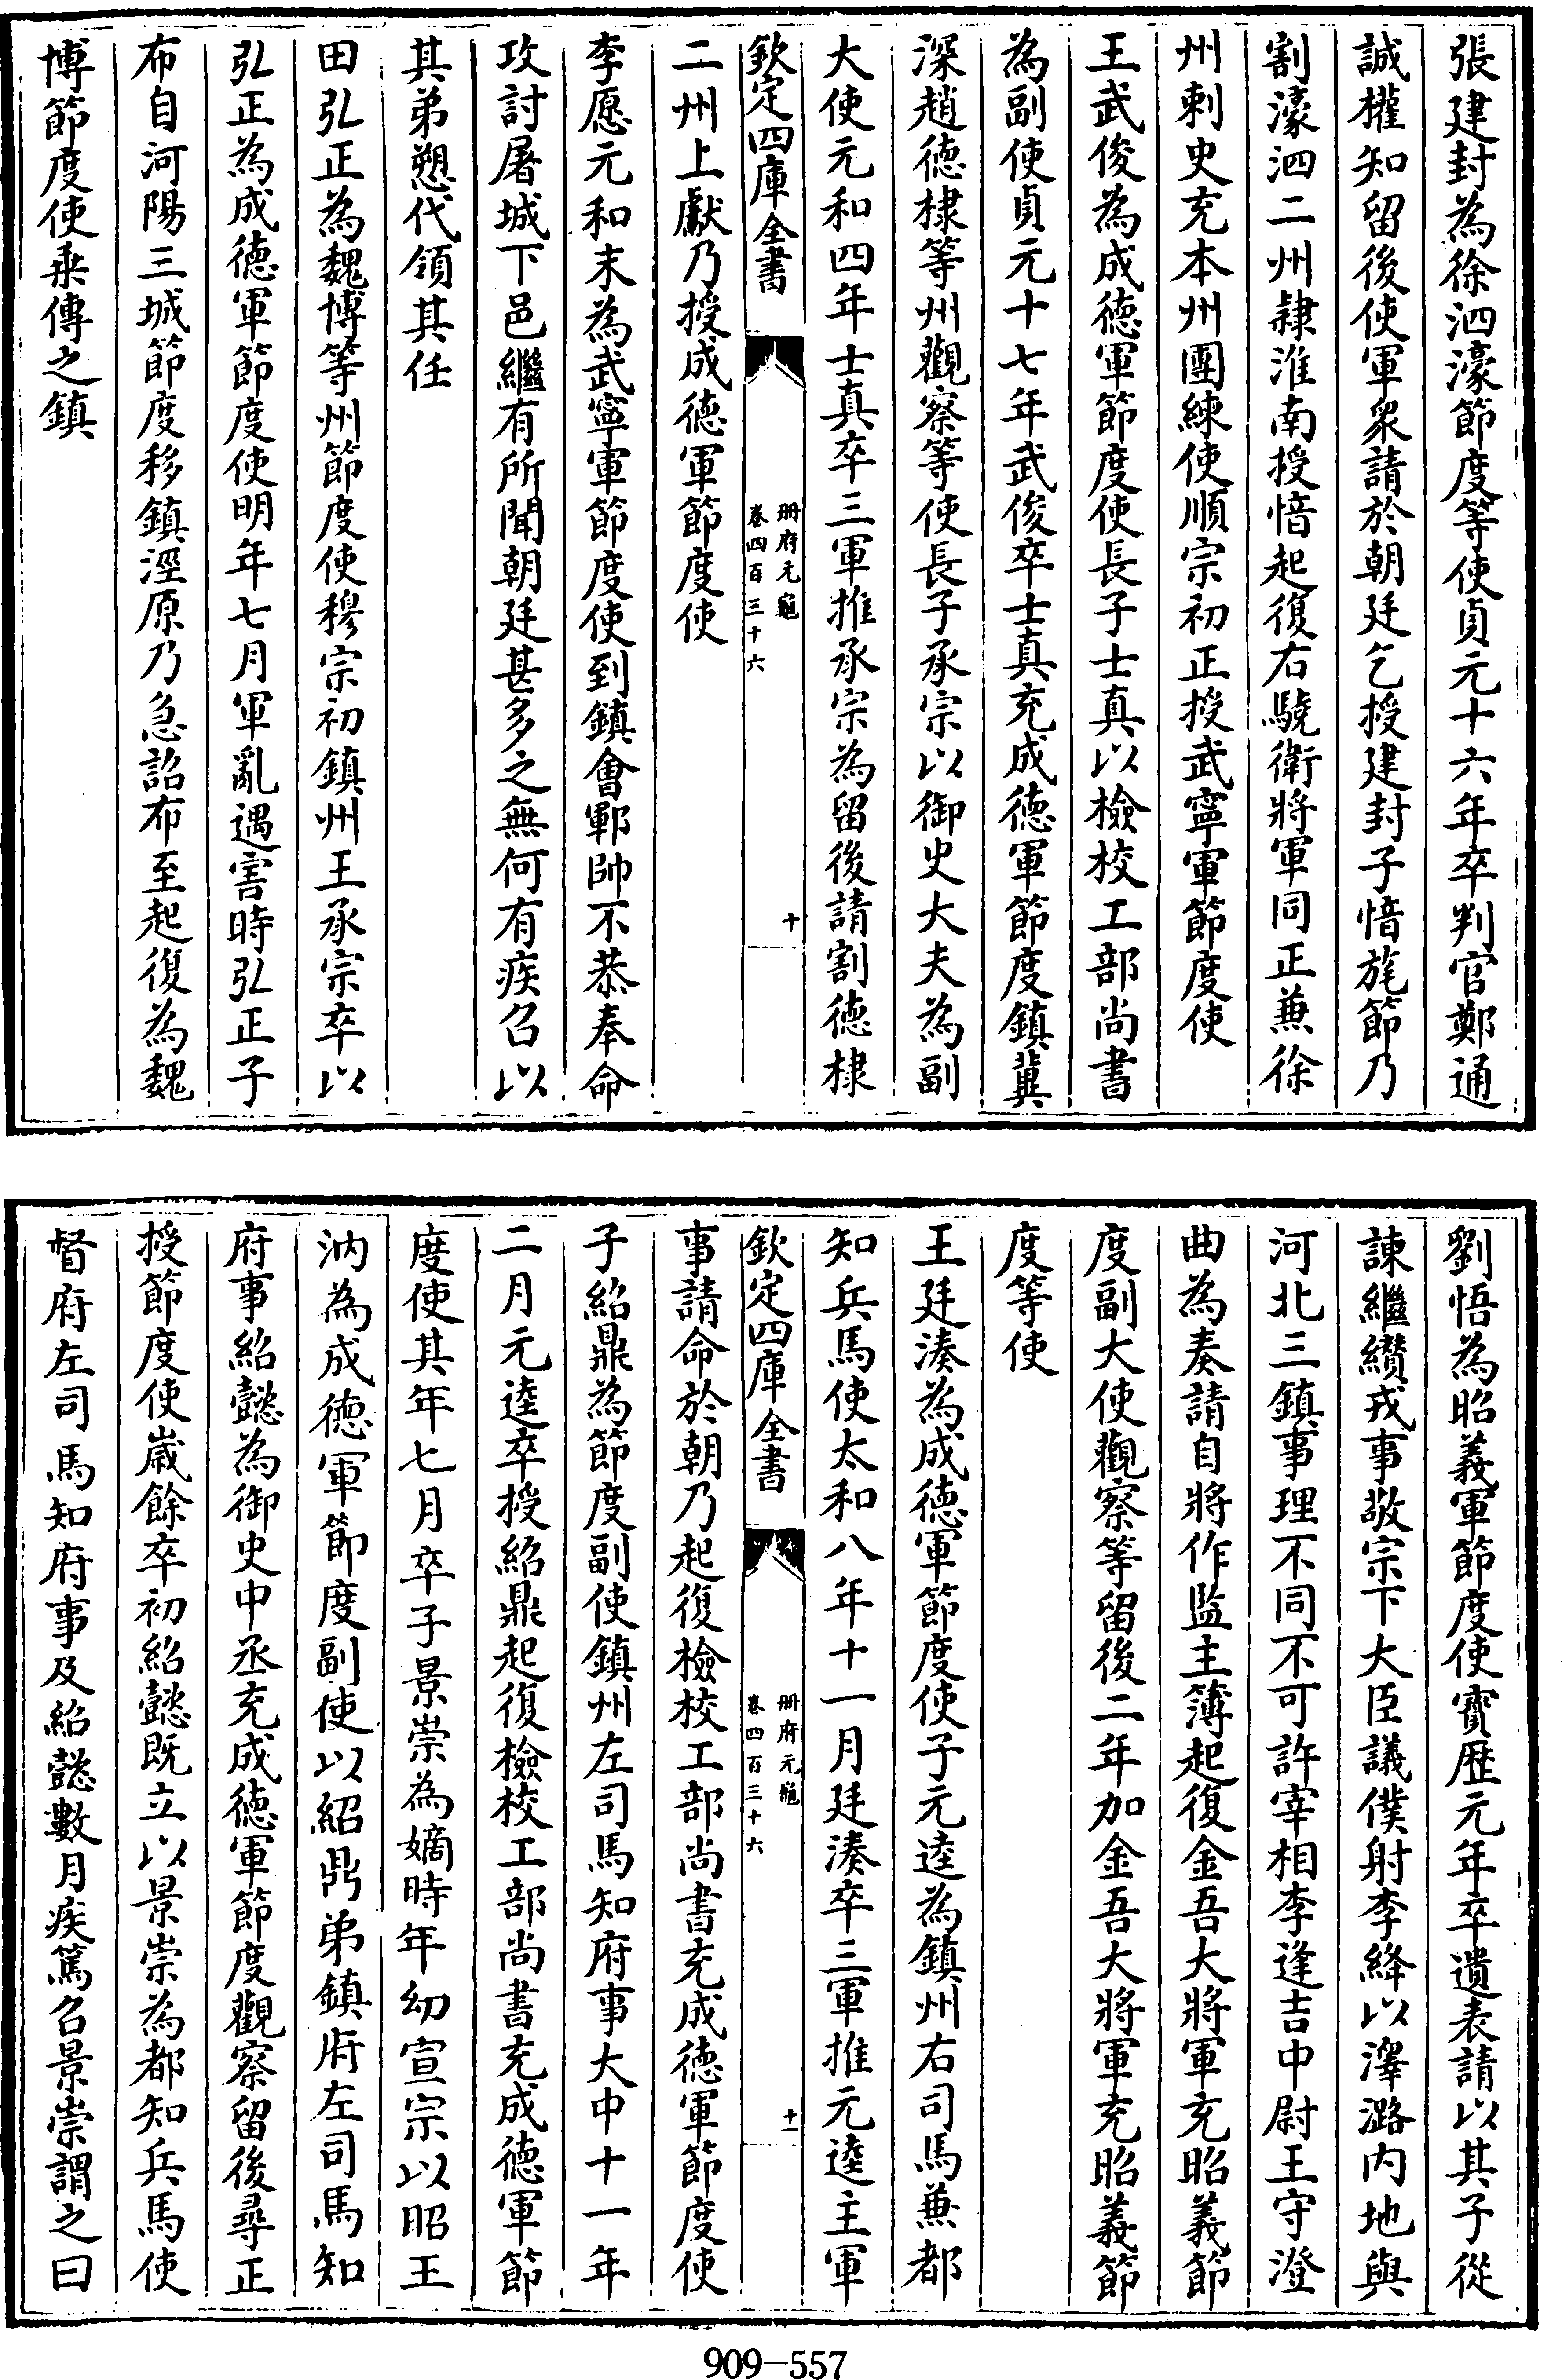 張建封為徐泗濠節度等使貞元十六年卒判官鄭通
誠權知留後使軍衆請於朝廷乞授建封子愔旄節乃
割濠泗二州隷淮南授愔起復右驍衛將軍同正兼徐
州刺史充本州團練使順宗初正授武寧軍節度使
王武俊為成徳軍節度使長子士真以檢校工部尚書
為副使貞元十七年武俊卒士真充成徳軍節度鎮冀
深趙徳棣等州觀察等使長子承宗以御史大夫為副
大使元和四年士真卒三軍推承宗為留後請割徳棣
欽定四庫全書
冊府元龜
卷四百三十六
十
二州上獻乃授成徳軍節度使
李愿元和末為武寧軍節度使到鎮會鄆帥不恭奉命
攻討屠城下邑繼有所聞朝廷甚多之無何有疾召以
其弟愬代領其任
田弘正為魏博等州節度使穆宗初鎮州王承宗卒以
弘正為成徳軍節度使明年七月軍亂遇害時弘正子
布自河陽三城節度移鎮涇原乃急詔布至起復為魏
博節度使乗傳之鎮
劉悟為昭義軍節度使寳歴元年卒遺表請以其子從
諫繼纘戎事敬宗下大臣議僕射李絳以澤潞内地與
河北三鎮事理不同不可許宰相李逢吉中尉王守澄
曲為奏請自將作監主簿起復金吾大將軍充昭義節
度副大使觀察等留後二年加金吾大將軍充昭義節
度等使
王廷湊為成徳軍節度使子元逵為鎮州右司馬兼都
知兵馬使太和八年十一月廷湊卒三軍推元逵主軍
欽定四庫全書
冊府元龜
卷四百三十六
十一
事請命於朝乃起復檢校工部尚書充成徳軍節度使
子紹鼎為節度副使鎮州左司馬知府事大中十一年
二月元逵卒授紹鼎起復檢校工部尚書充成徳軍節
度使其年七月卒子景崇為嫡時年幼宣宗以昭王
汭為成徳軍節度副使以紹鼎弟鎮府左司馬知
府事紹懿為御史中丞充成徳軍節度觀察留後尋正
授節度使嵗餘卒初紹懿既立以景崇為都知兵馬使
督府左司馬知府事及紹懿數月疾篤召景崇謂之曰
909-557